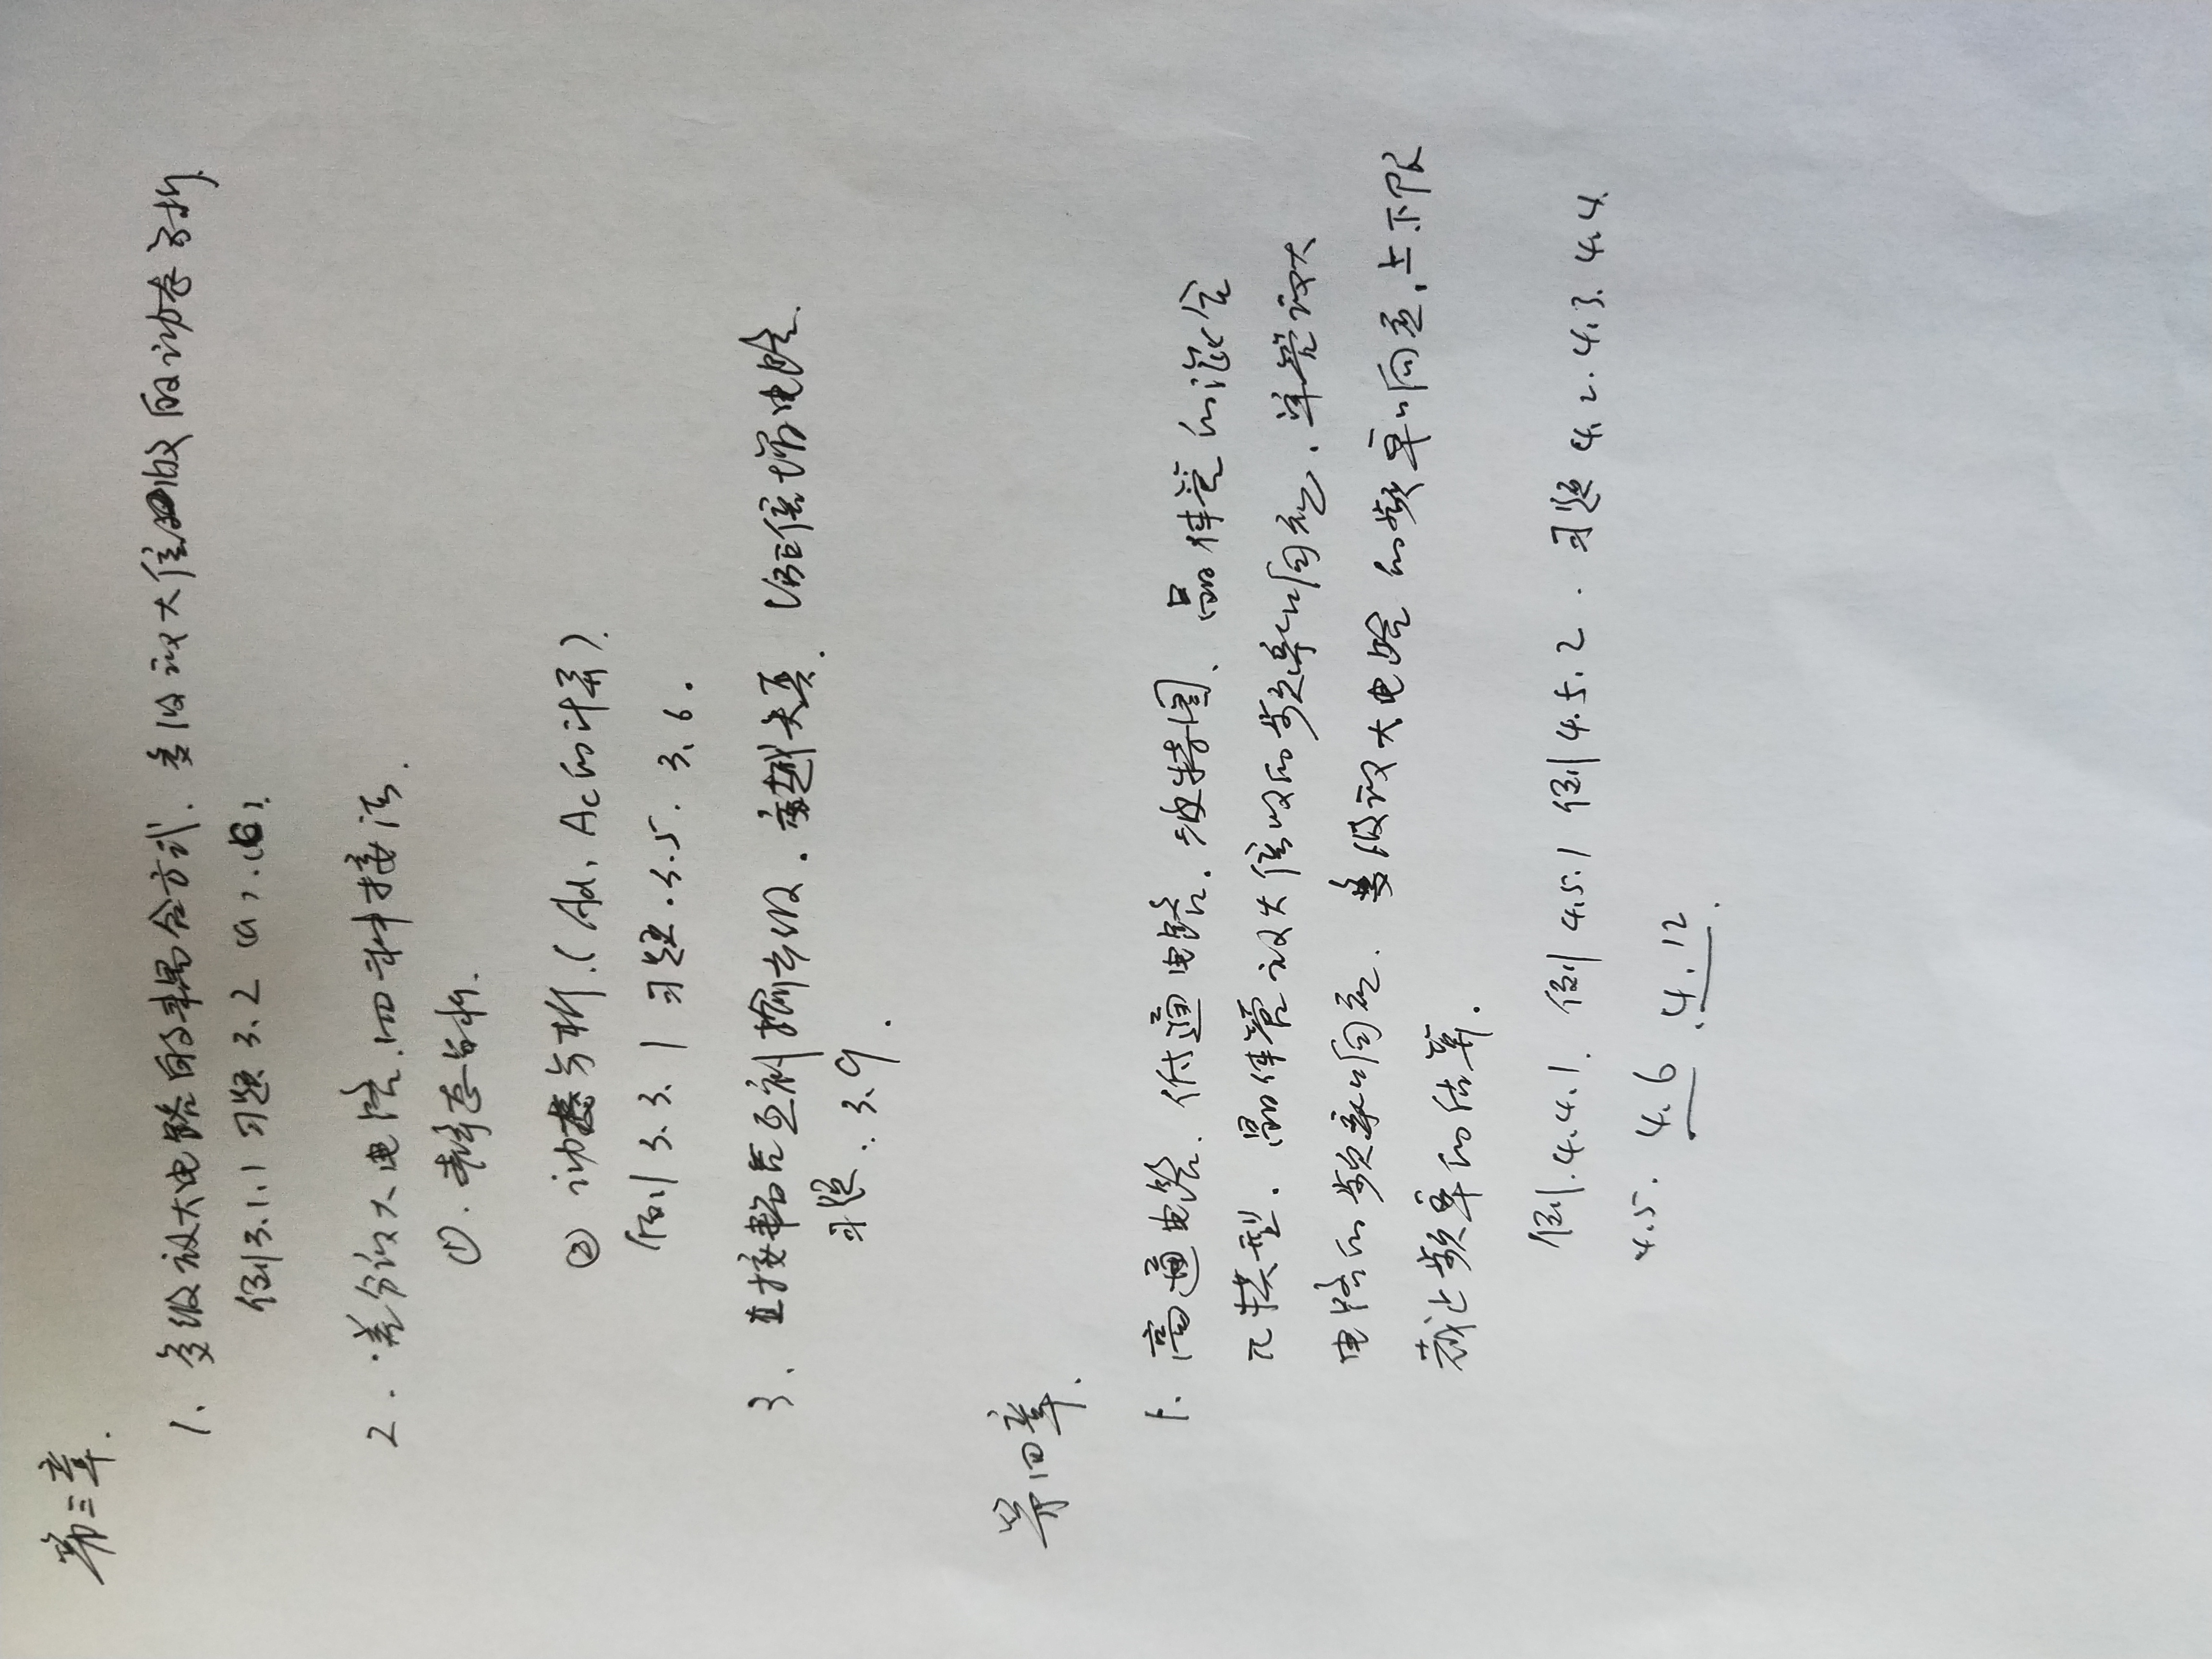 第三章.
1、多级放大电路的耦合方式. 多级放大倍数的动态分析.
例3.1.1 习题3.2 (a).(b).
2. 差分放大电路.四种接法.
①. 静态分析.
② 动态分析.(Ad, Ac的计算).
例 3.3.1 习题.3.5. 3.6.
3、直接耦合互补输出级. 交越失真. UBE倍增电路.
习题. 3.9.
第四章.
1. 高通电路. 低通电路. 波特图、晶体管的混合
π模型. 晶体管放大倍数的频率响应. 单管放大
电路的频率响应. 多级放大电路的频率响应.上下限
截止频率的估算.
例.4.4.1. 例4.5.1 例4.5.2. 习题 4.2.4.3.4.4.
4.5. 4.6 .4.12.